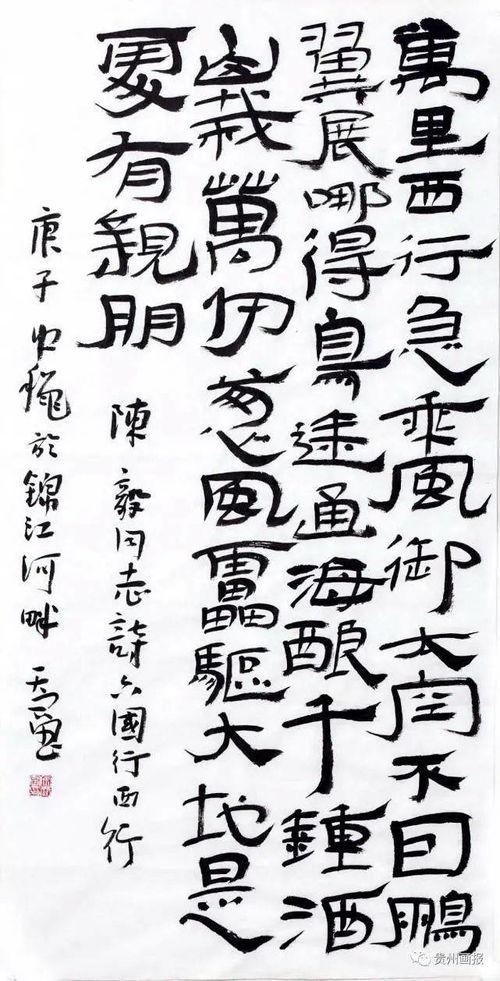 萬里西行急乘風御太空不因鵬
翼展哪得鳥途通海酿千鍾酒
山栽萬仞葱風靁驅大地是
處有親朋
陳毅同志詩六國行西行
庚子中龝於錦江河畔
贵州画报